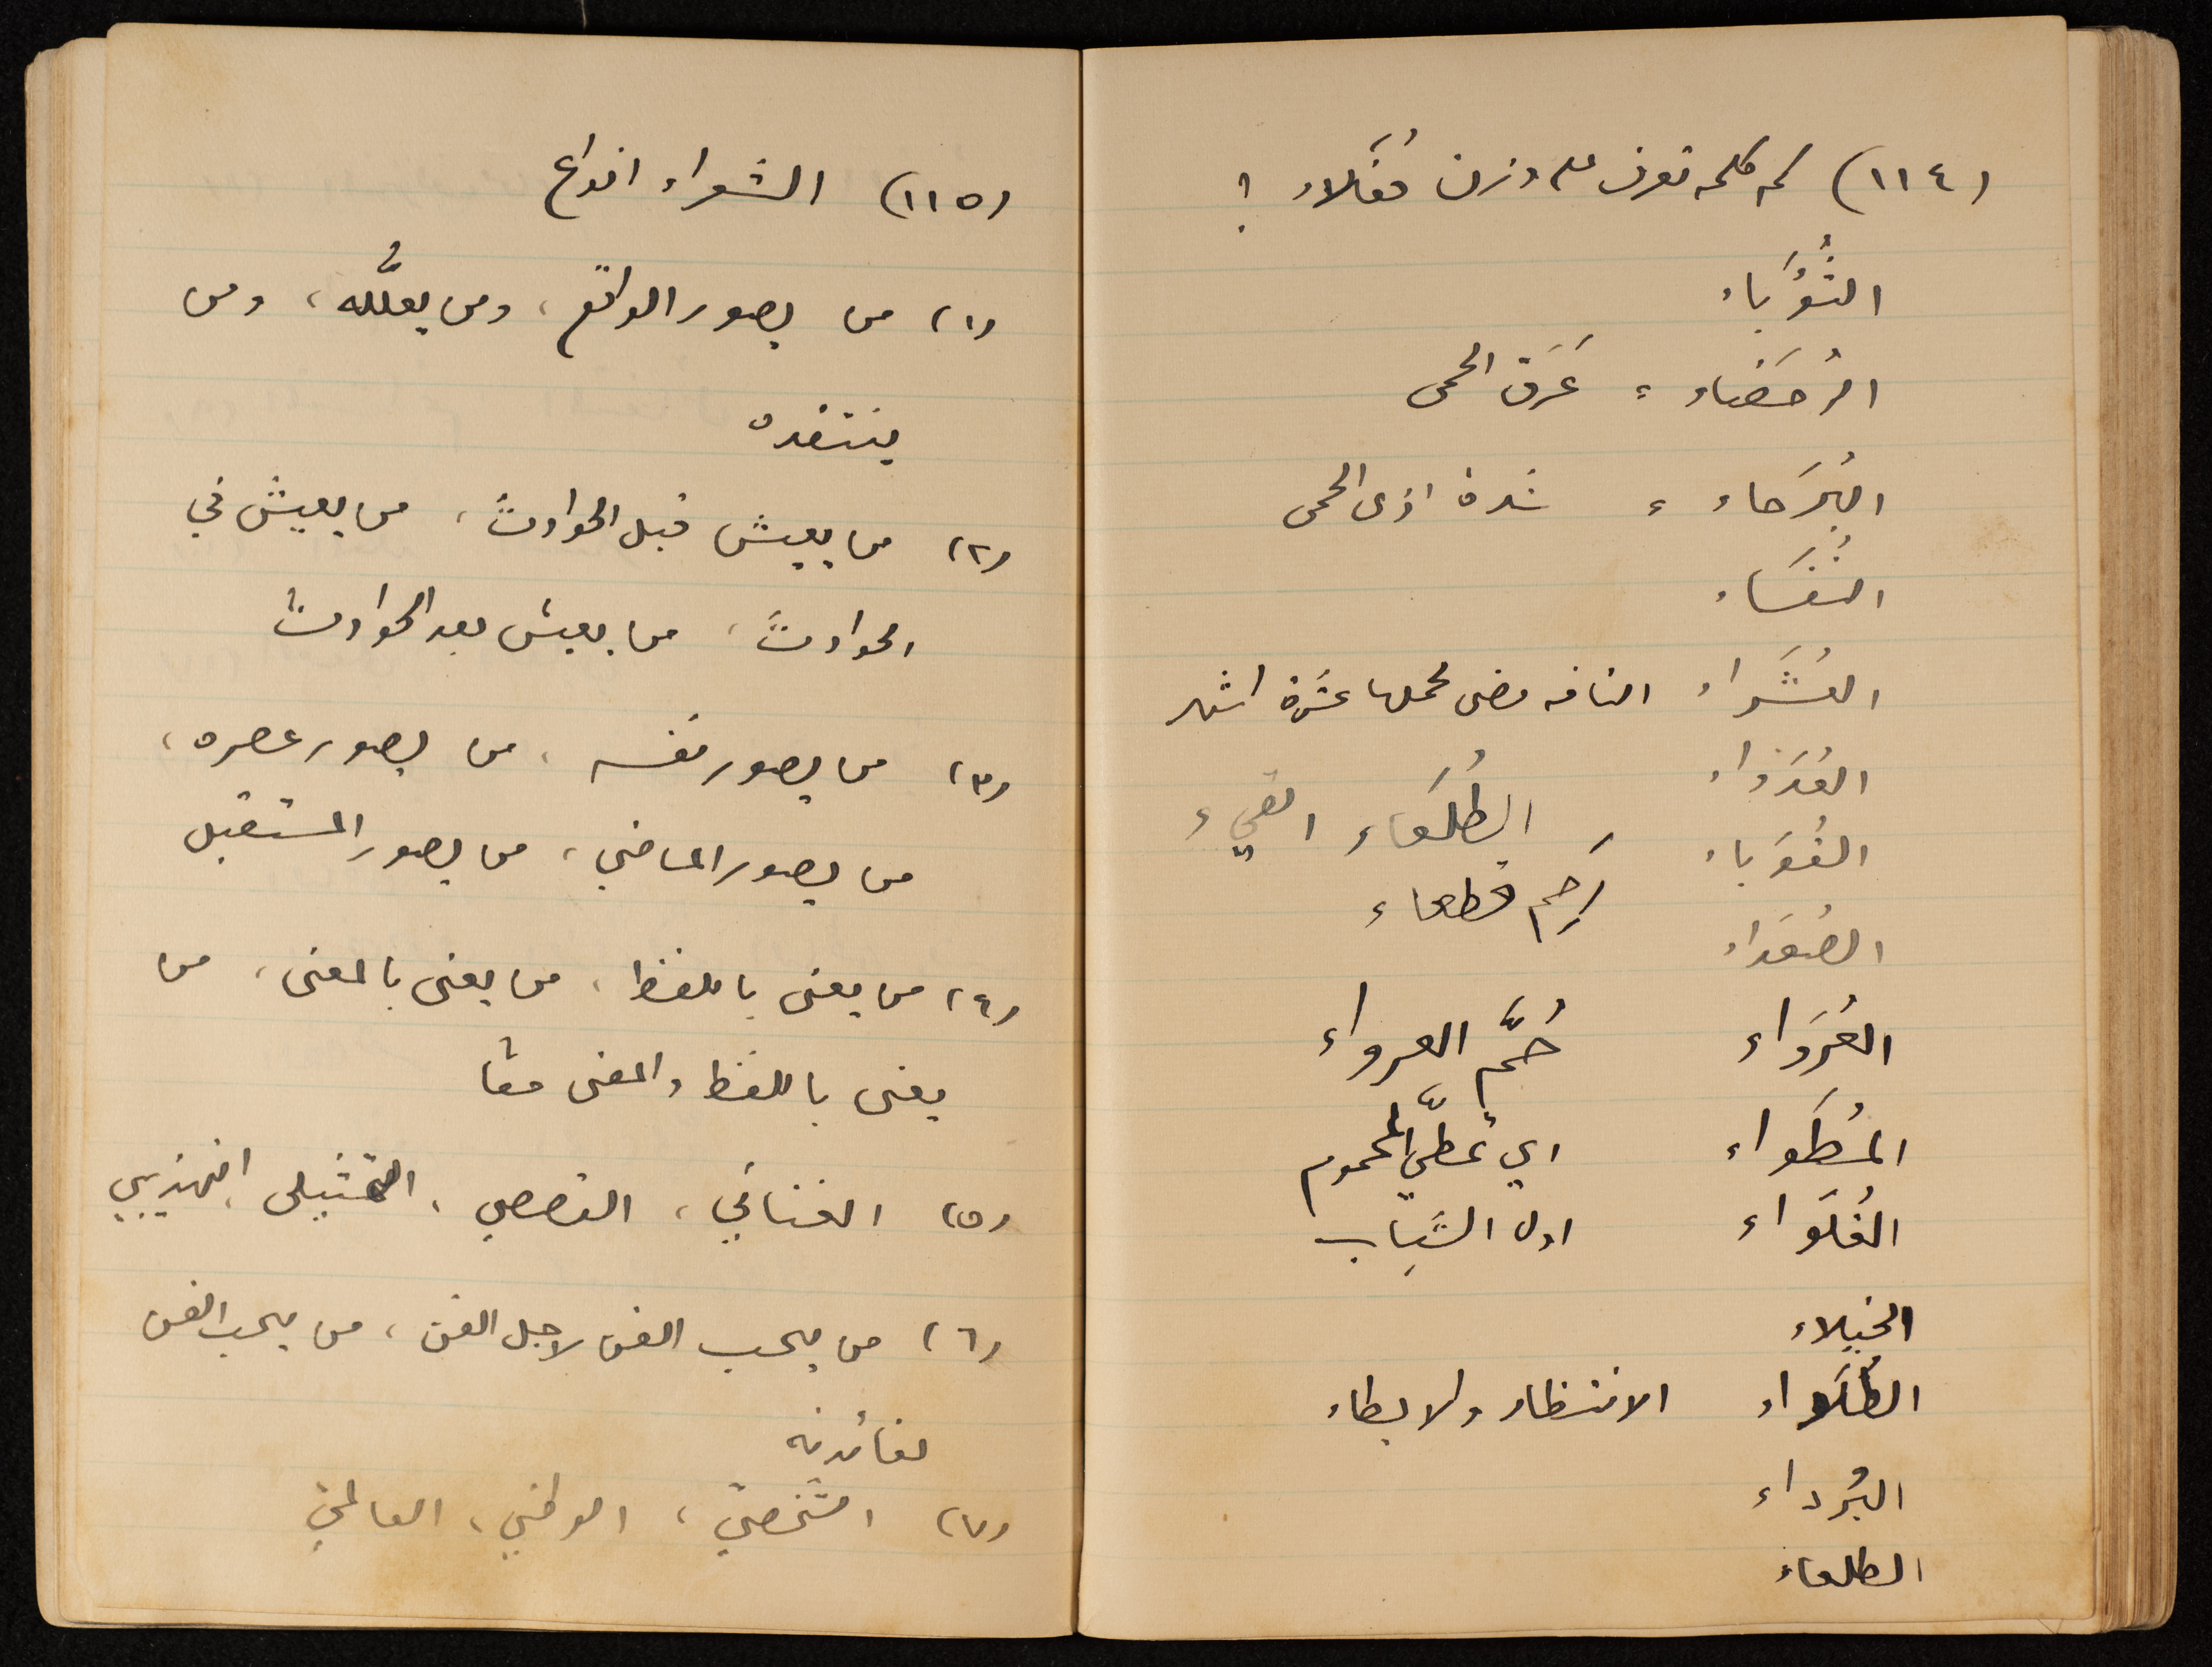 (١١٤) كم كلمه تعرف على وزن فُعَلاء ؟
الثُؤَباء
الرُحَضاء ؛ عَرَق الحمى
البُرَحاء ؛ شدة اذى الحمى
النُفَساء
العُشَراء الناقه مضى لحملها عشرة اشهر
العُدَواء
الطُلَعاء القيء
القُوَباء
رَحِم قطعاء
الصُعَداء
العُرَواء حُمَّ العرواء
المُطَواء اي تمطّي المحموم
الغُلَواء اول الشَباب
الخيلاء
الطُلَواء الانتظار والابطاء
البُرداء
الطلعاء
(١١٥) الشعراء انواع
(١) من يصور الواقع ، ومن يعلِّله ، ومن
ينتقده
(٢) من يعيش قبل الحوادث ، من يعيش في
الحوادث ، من يعيش بعد الحوادث
(٣) من يصور نفسه ، من يصور عصره ،
من يصور الماضي ، من يصور المستقبل
(٤) من يعنى باللفظ ، من يعنى بالمعنى ، من
يعنى باللفظ والمعنى معًا
(٥) الغنائي ، القصصي ، التمثيلي ، التهذيبي
(٦) من يحب الفن لاجل الفن ، من يحب الفن
لفائدته
(٧) الشخصيّ ، الوطني ، العالميّ